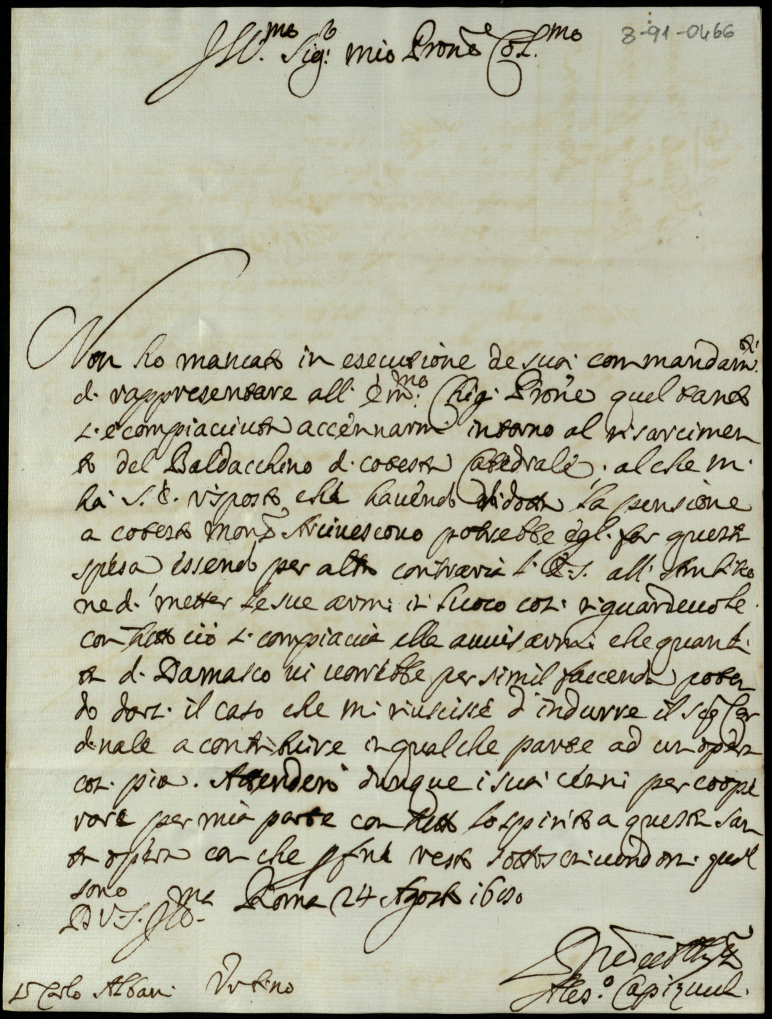 8-91-0466
Ill.mo Sig.r mio Prone Col.mo
Non ho mancato in esecutione de suoi commandam.ti
di rappresentare all' Em.mo Chigi Prone quel tanto
s'è compiaciuta accennarmi intorno al risarcimen
to del Baldacchino di cotesta Catedrale. al che m'
ha S. E. risposto che havendo la pensione
a cotesto Mons.r Arcivescovo potrebbe egli far questa
spesa essendo per altro contraria S. E. all'
ne di metter le sue armi in luoco così riguardevole.
con tutto ciò si compiaccia ella avvisarmi che quanti
tà di Damasco vi vorrebbe per simil faccenda poten
do darsi il caso che mi riuscisse d'indurre il Sig.r Car
dinale a contribuire in qualche parte ad un opera
così pia. Attenderò dunque i suoi cenni per coope
rare per mia parte con tutto lo spirito a questa san
ta opera con che per fine resto sottoscrivendomi qual
sono
D V. S. Ill.ma Roma 24 Agosto 1680
Aless.o Capizuchi
S.r Carlo Albani Urbino